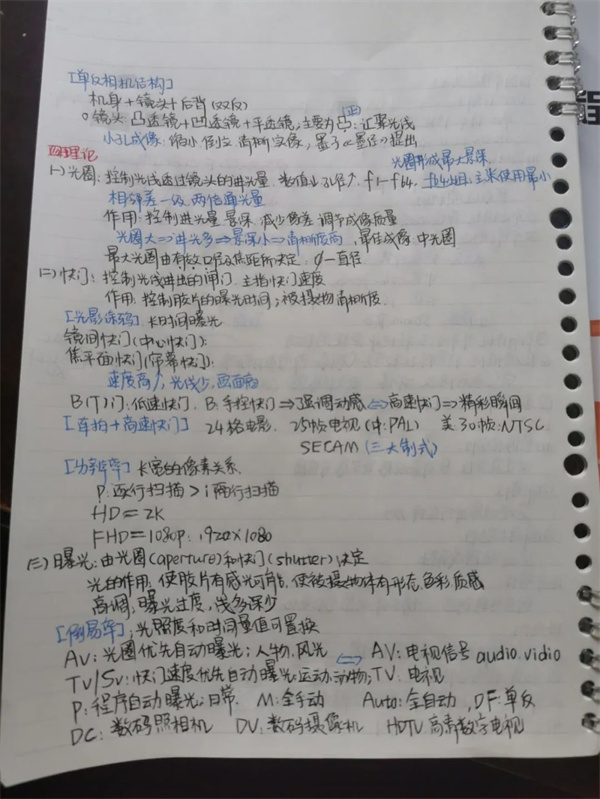 [单反相机结构]
机身+镜头+后背(双反)
○镜头:凸透镜+凹透镜+平透镜,主要为凸(正):汇聚光线
小孔成像:缩小 倒立 清晰 实像,墨子《墨经》提出
理论
光圈形成最大景深
(一)光圈:控制光线透过镜头的进光量 数值小 孔径↑ f1-f64, f64组,主张使用最小
相邻差一级,两倍通光量
作用:控制进光量 景深,减少像差 调节成像质量
光圈大⇒进光多⇒景深小⇒清晰度高,最佳成像 中光圈
最大光圈由有效口径及焦距所决定 φ—直径
(二)快门:控制光线进出的闸门,主指快门速度
作用:控制胶片的曝光时间;被摄物清晰度
[光影涂鸦] 长时间曝光
镜间快门(中心快门):
焦平面快门(帘幕快门):
速度高,光线少,画面暗
B(T)门:低速快门 B:手控快门⇒强调动感⇔高速快门⇒精彩瞬间
[连拍+高速快门] 24格电影 25帧电视(中:PAL) 美30帧:NTSC
SECAM (三大制式)
[分辨率] 长宽的像素关系
P:逐行扫描>i隔行扫描
HD=2K
FHD=1080p:1920×1080
(三)曝光:由光圈(aperture)和快门(shutter)决定
光的作用 使胶片有感光可能,使被摄物体有形态 色彩 质感
高调:曝光过度,浅多深少
[倒易率]:光照度和时间量值可置换
AV:光圈优先自动曝光;人物、风光 ⇔ AV:电视信号 audio.vidio
TV/Sv:快门速度优先自动曝光;运动、动物;TV:电视
P:程序自动曝光;日常 M:全手动 Auto:全自动,DF:单反
DC:数码照相机 DV:数码摄像机 HDTV 高清数字电视